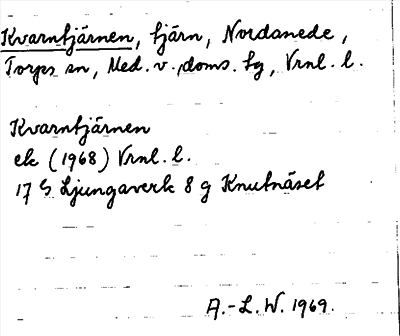 Kvarntjärnen, tjärn, Nordanede,
Torps sn, Med. v. doms. tg, Vrnl. l.
Kvarntjärnen
ek (1968) Vrnl. l.
17 S Ljungaverk 8 g Knutnäset
A.-L. W. 1969.